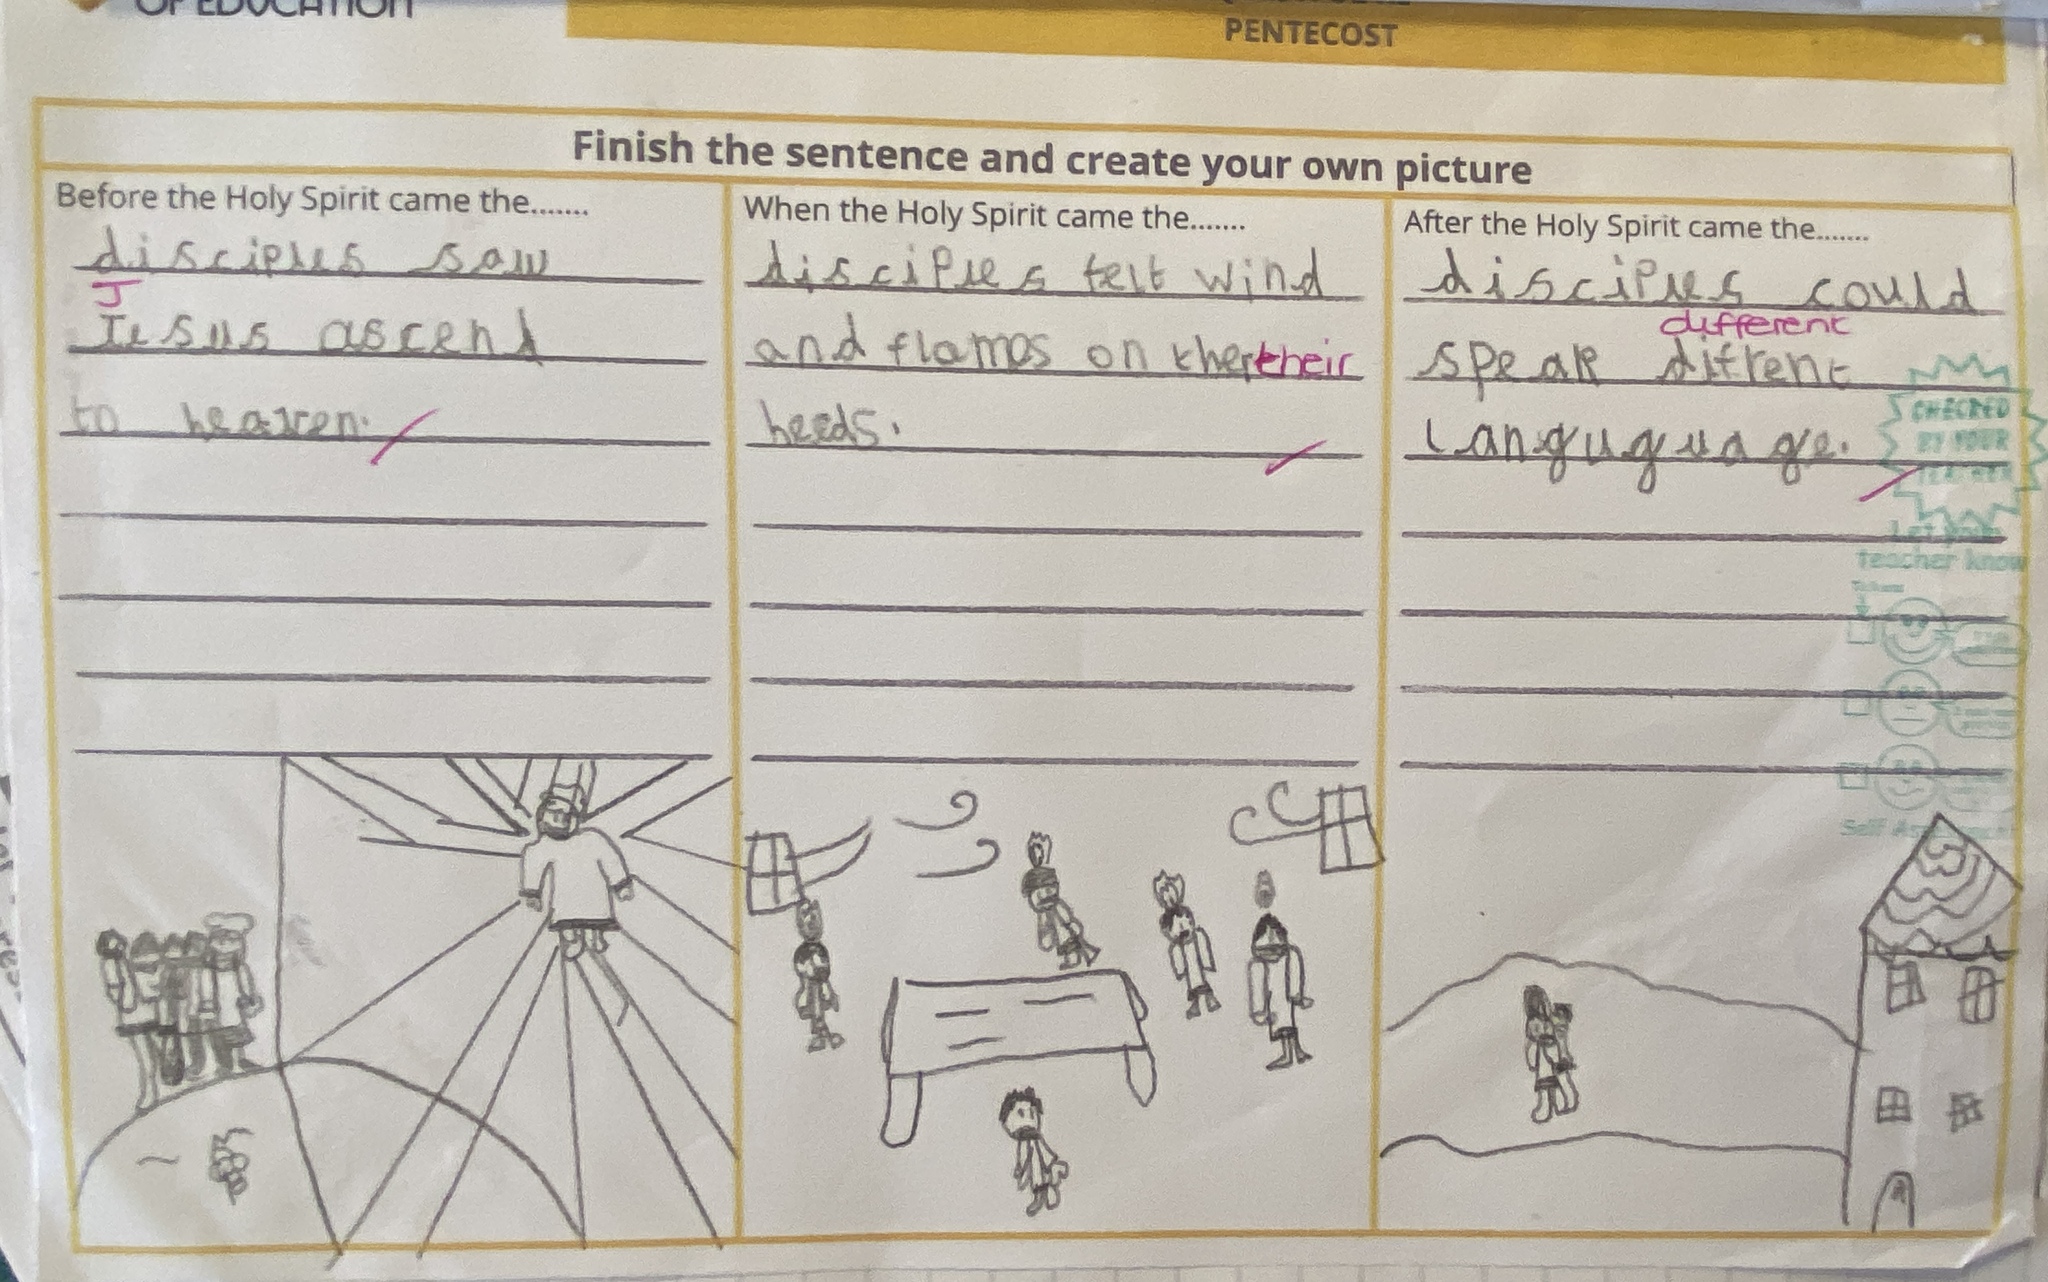 OF EDUCATION
PENTECOST
Finish the sentence and create your own picture
Before the Holy Spirit came the.......
disciples saw
J
Jesus ascend
to heaven.
When the Holy Spirit came the.......
disciples felt wind
and flames on ther their
heeds.
After the Holy Spirit came the.......
disciples could
different
speak difrent
languguage.
CHECKED
BY YOUR
TEACHER
Let your
teacher know
Self